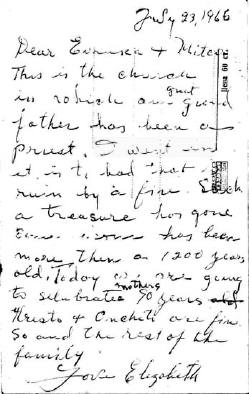 July 23, 1966
Dear & Mitch
This is the church
in which our great grand
father has been a
Priest. I went in
it is to bad that
ruin by a fire. Such
a treasure has gone
has been
more then a 1200 years
old, Today we are going
to selubratie mothers 90 years
Hristo & are fine
So and the rest of the
family
Love Elizabeth